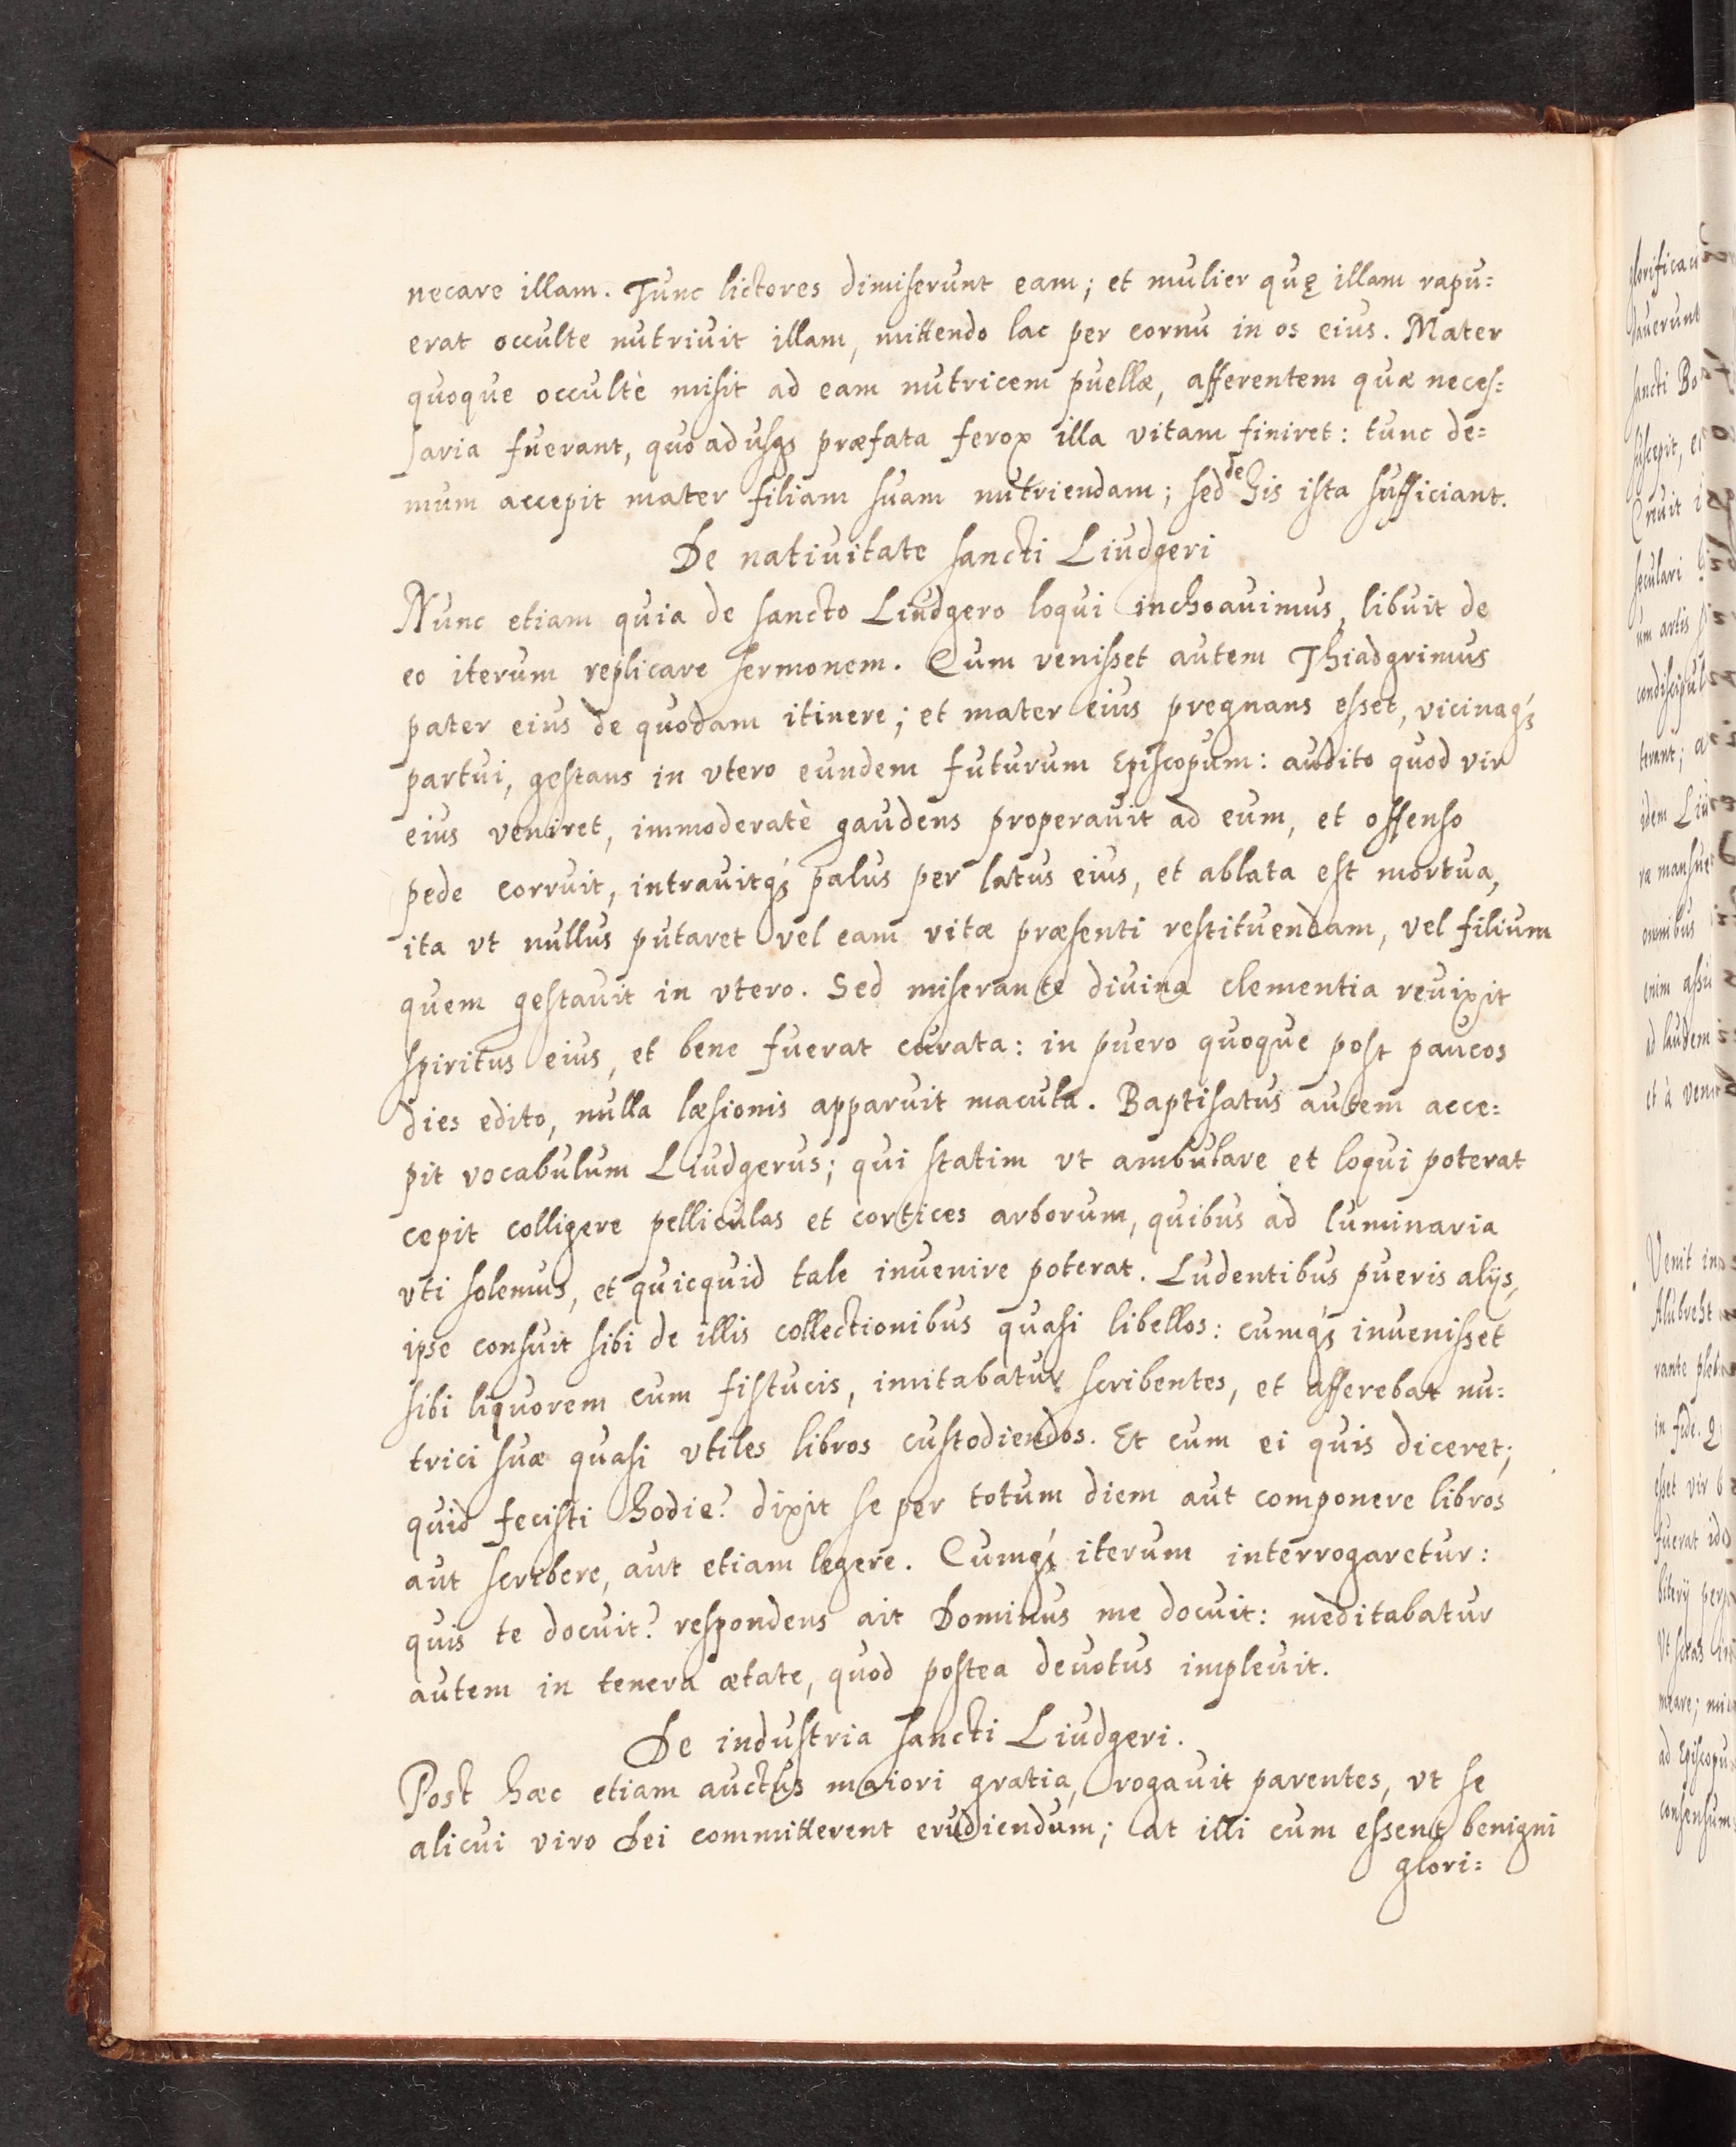 necare illam. Tunc lictores dimiserunt eam; et mulier quę illam rapu=
erat occulte nutriuit illam, mittendo lac per cornu in os eius. Mater
quoque occultè misit ad eam nutricem puellæ, afferentem quæ neces=
saria fuerant, quo adusqȝ præfata ferox illa vitam finiret: tunc de=
mum accepit mater filiam suam nutriendam; sed de his ista sufficiant.
De natiuitate sancti Liudgeri
Nunc etiam quia de sancto Liudgero loqui inchoauimus, libuit de
eo iterum replicare sermonem. Cum venisset autem Thiadgrimus
pater eius de quodam itinere; et mater eius pregnans esset, vicinaqȝ
partui, gestans in vtero eundem futurum Episcopum: audito quod vir
eius veniret, immoderatè gaudens properauit ad eum, et offenso
pede corruit, intrauitqȝ palus per latus eius, et ablata est mortua,
ita vt nullus putaret vel eam vitæ præsenti restituendam, vel filium
quem gestauit in vtero. Sed miserante diuina clementia reuixit
spiritus eius, et bene fuerat curata: in puero quoque post paucos
dies edito, nulla læsionis apparuit macula. Baptisatus autem acce=
pit vocabulum Liudgerus; qui statim vt ambulare et loqui poterat
cepit colligere pelliculas et cortices arborum, quibus ad luminaria
vti solemus, et quicquid tale inuenire poterat. Ludentibus pueris alijs,
ipse consuit sibi de illis collectionibus quasi libellos: cumqȝ inuenisset
sibi liquorem cum fistucis, imitabatur scribentes, et afferebat nu=
trici suæ quasi vtiles libros custodiendos. Et cum ei quis diceret;
quid fecisti hodie? dixit se per totum diem aut componere libros
aut scribere, aut etiam legere. Cumqȝ iterum interrogaretur:
quis te docuit? respondens ait Dominus me docuit: meditabatur
autem in tenera ætate, quod postea deuotus impleuit.
De industria sancti Liudgeri.
Post hæc etiam auctus maiori gratia, rogauit parentes, vt se
alicui viro Dei committerent erudiendum; at illi cum essent benigni
glori=